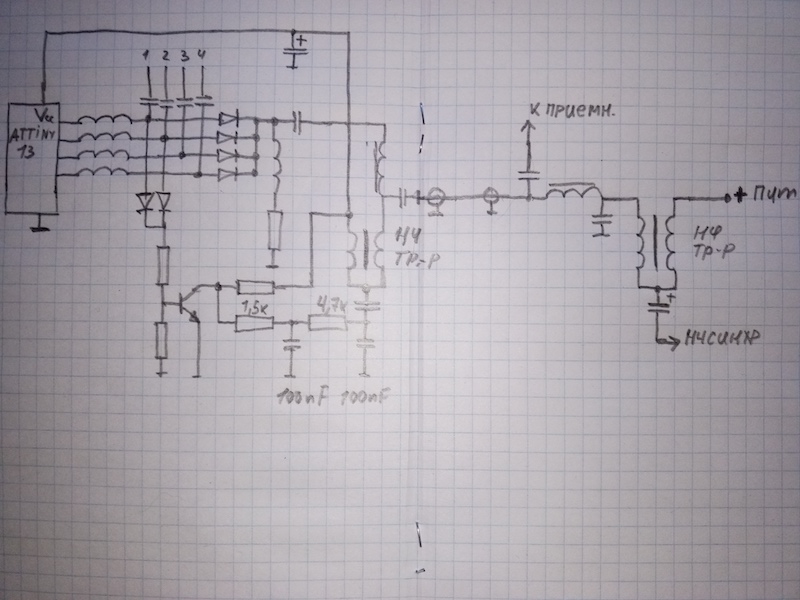 +
1 2 3 4
К ПРИЕМН.
Vcc
ATTINY
13
+ Пит
НЧ
ТР-Р
НЧ
ТР-Р
1,5к
4,7к
+
НЧСИНХР
100nF 100nF